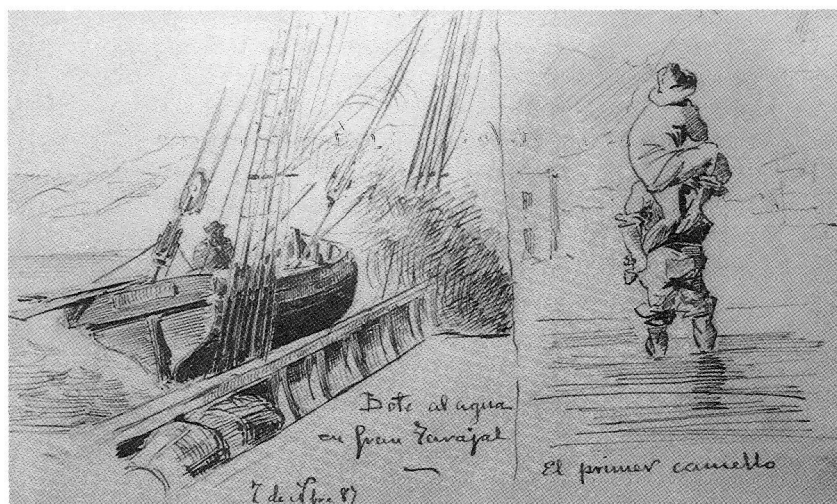 Bote al agua
en Gran Tarajal
7 de Nbre 87
El primer camello